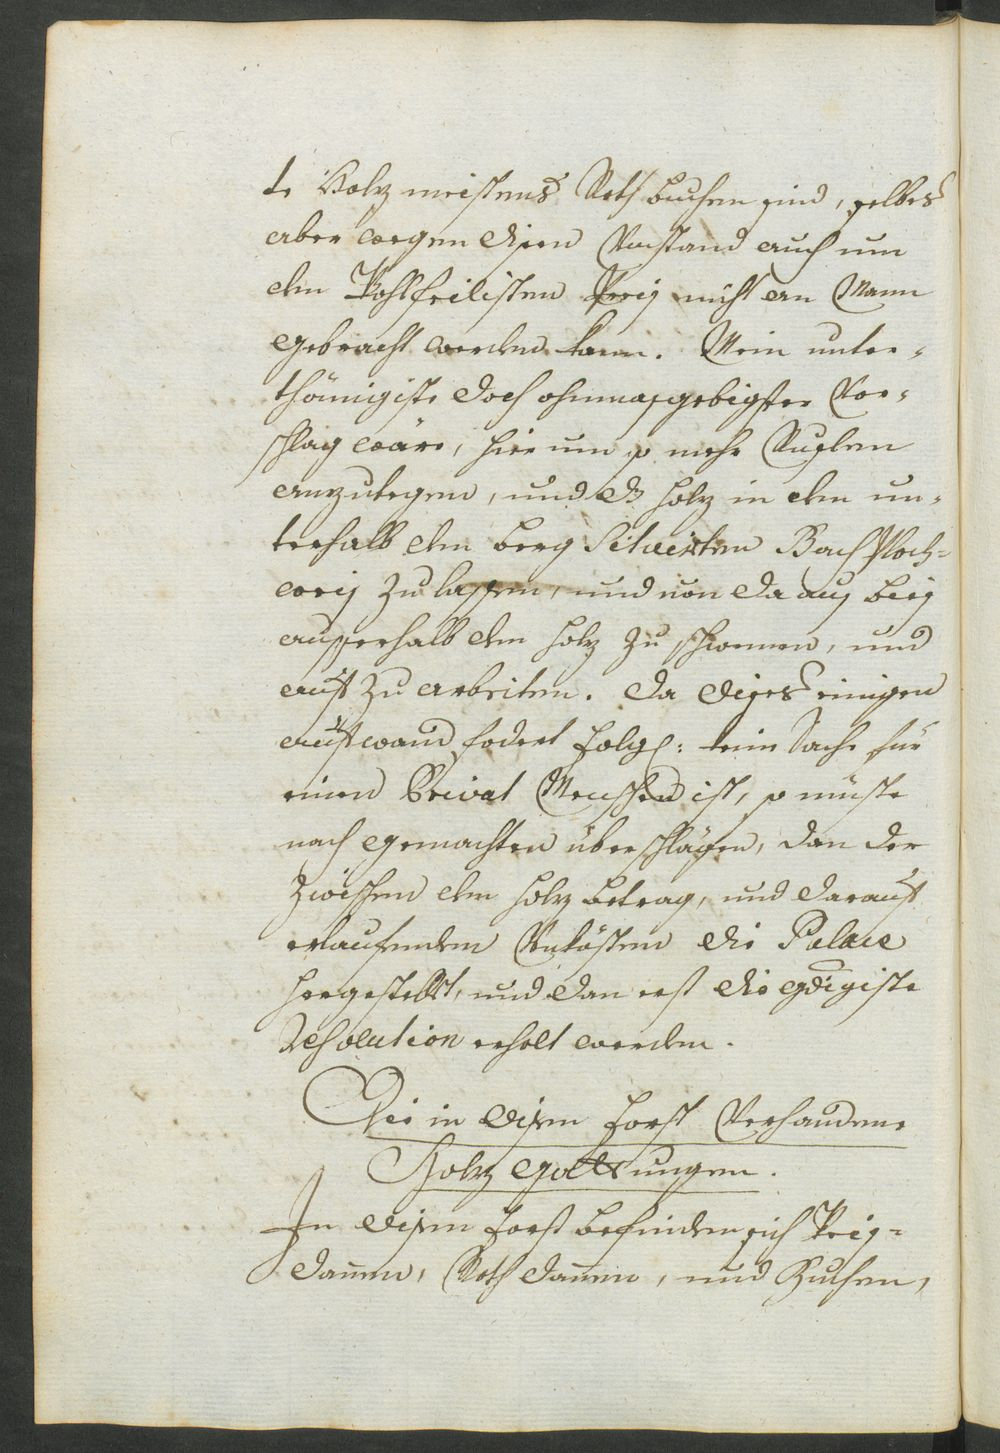 te Holz meistens Roth buchen sind, selbes
aber wegen disen Umstand auch um
den Wohlfeilisten Preis nicht an Mann
gebracht werden kann. Mein unter-
thänigiste doch ohnmasgebigster Vor-
schlag wäre, hier um so mehr
anzulegen, und das Holz in den un-
terhalb den berg Situirten Bach
zu lassen, und von da aus bis
ausserhalb den Holz zu schwemen, und
aufzuarbeiten. Da dises einigen
aufwand fodert folgl: kein Sache für
einen Privat Menschen ist, so müste
nach gemachten überschlägen, dan der
zwischen den Holz betrag, und darauf
erlaufenden Unkösten die Palance
hergestellt, und dan erst die gdigiste
Resolution erholt werden.
Die in disen Forst Verhandene
Holz gattungen.
In disen Forst befinden sich Weis-
danen, Roth danen, und Buchen,